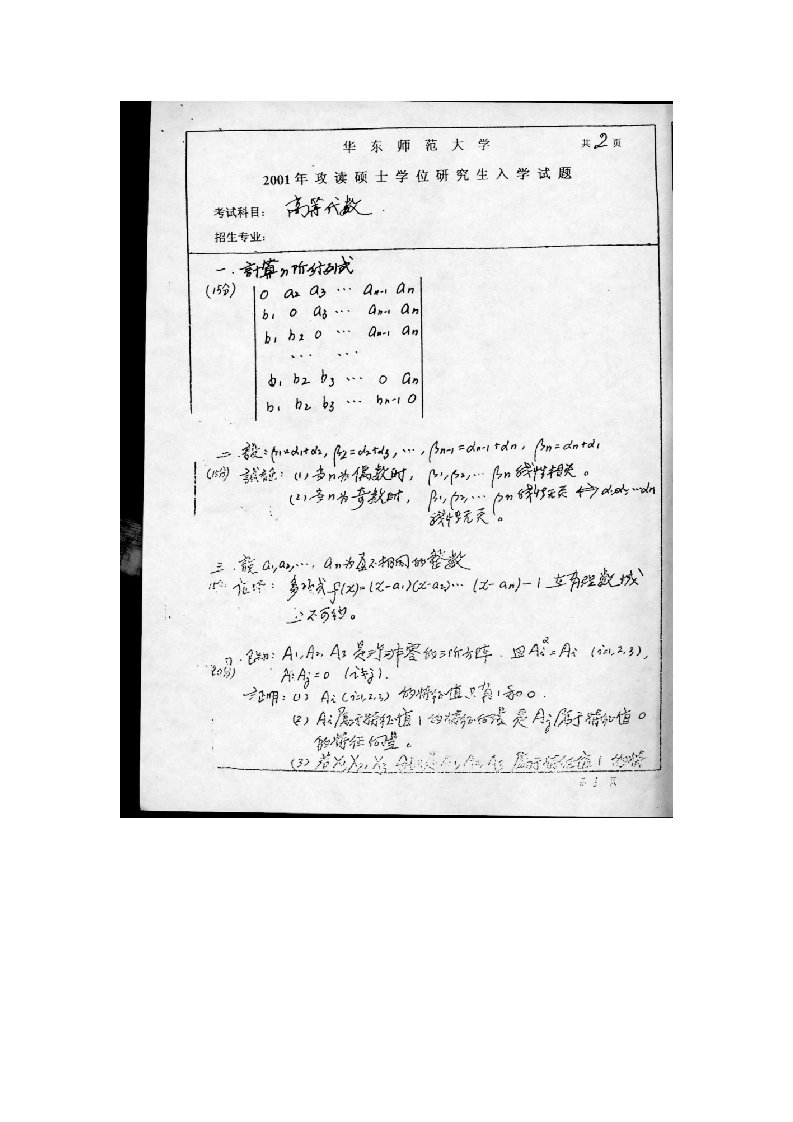 华东师范大学
共2页
2001年攻读硕士学位研究生入学试题
考试科目: 高等代数
招生专业:
一. 計算n阶行列式
(15分)
0 a2 a3 ⋯ an-1 an
b1 0 a3 ⋯ an-1 an
b1 b2 0 ⋯ an-1 an
⋯ ⋯
b1 b2 b3 ⋯ 0 an
b1 b2 b3 ⋯ bn-1 0
二. 設: β1=α1+α2, β2=α2+α3, ⋯, βn-1=αn-1+αn, βn=αn+α1
(15分) 試証: (1) 当n为偶数时, β1,β2,⋯ βn 线性相关。
(2) 当n为奇数时, β1,β2,⋯ βn 线性无关 ⟺ α1α2⋯αn
线性无关。
三. 設 a1,a2,⋯, an为互不相同的整数
证: 多项式 f(x)=(x-a1)(x-a2)⋯ (x-an)-1 在有理数域
上不可约。
已知: A1,A2, A3 是三个非零的三阶方阵. 且Ai²=Ai (i=1,2,3),
(20分) AiAj=0 (i≠j).
证明: (1) Ai (i=1,2,3) 的特征值只有1和0.
(2) Ai属于特征值1的特征向量是Aj属于特征值0
的特征向量。
(3) 若X1,X2,X3 A1,A2,A3 属于特征值1的特
第 1 页